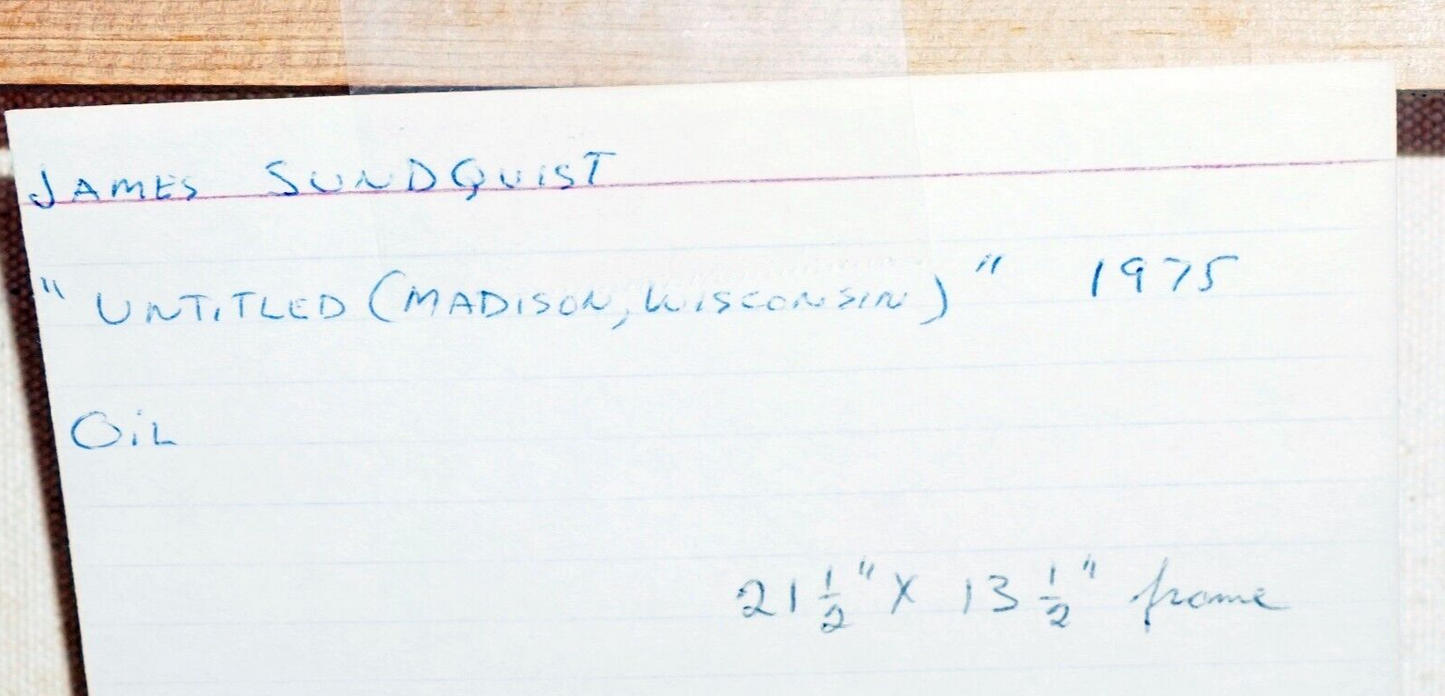 JAMES SUNDQUIST
"UNTITLED (MADISON, WISCONSIN)" 1975
OiL
21 1/2" X 13 1/2" frame